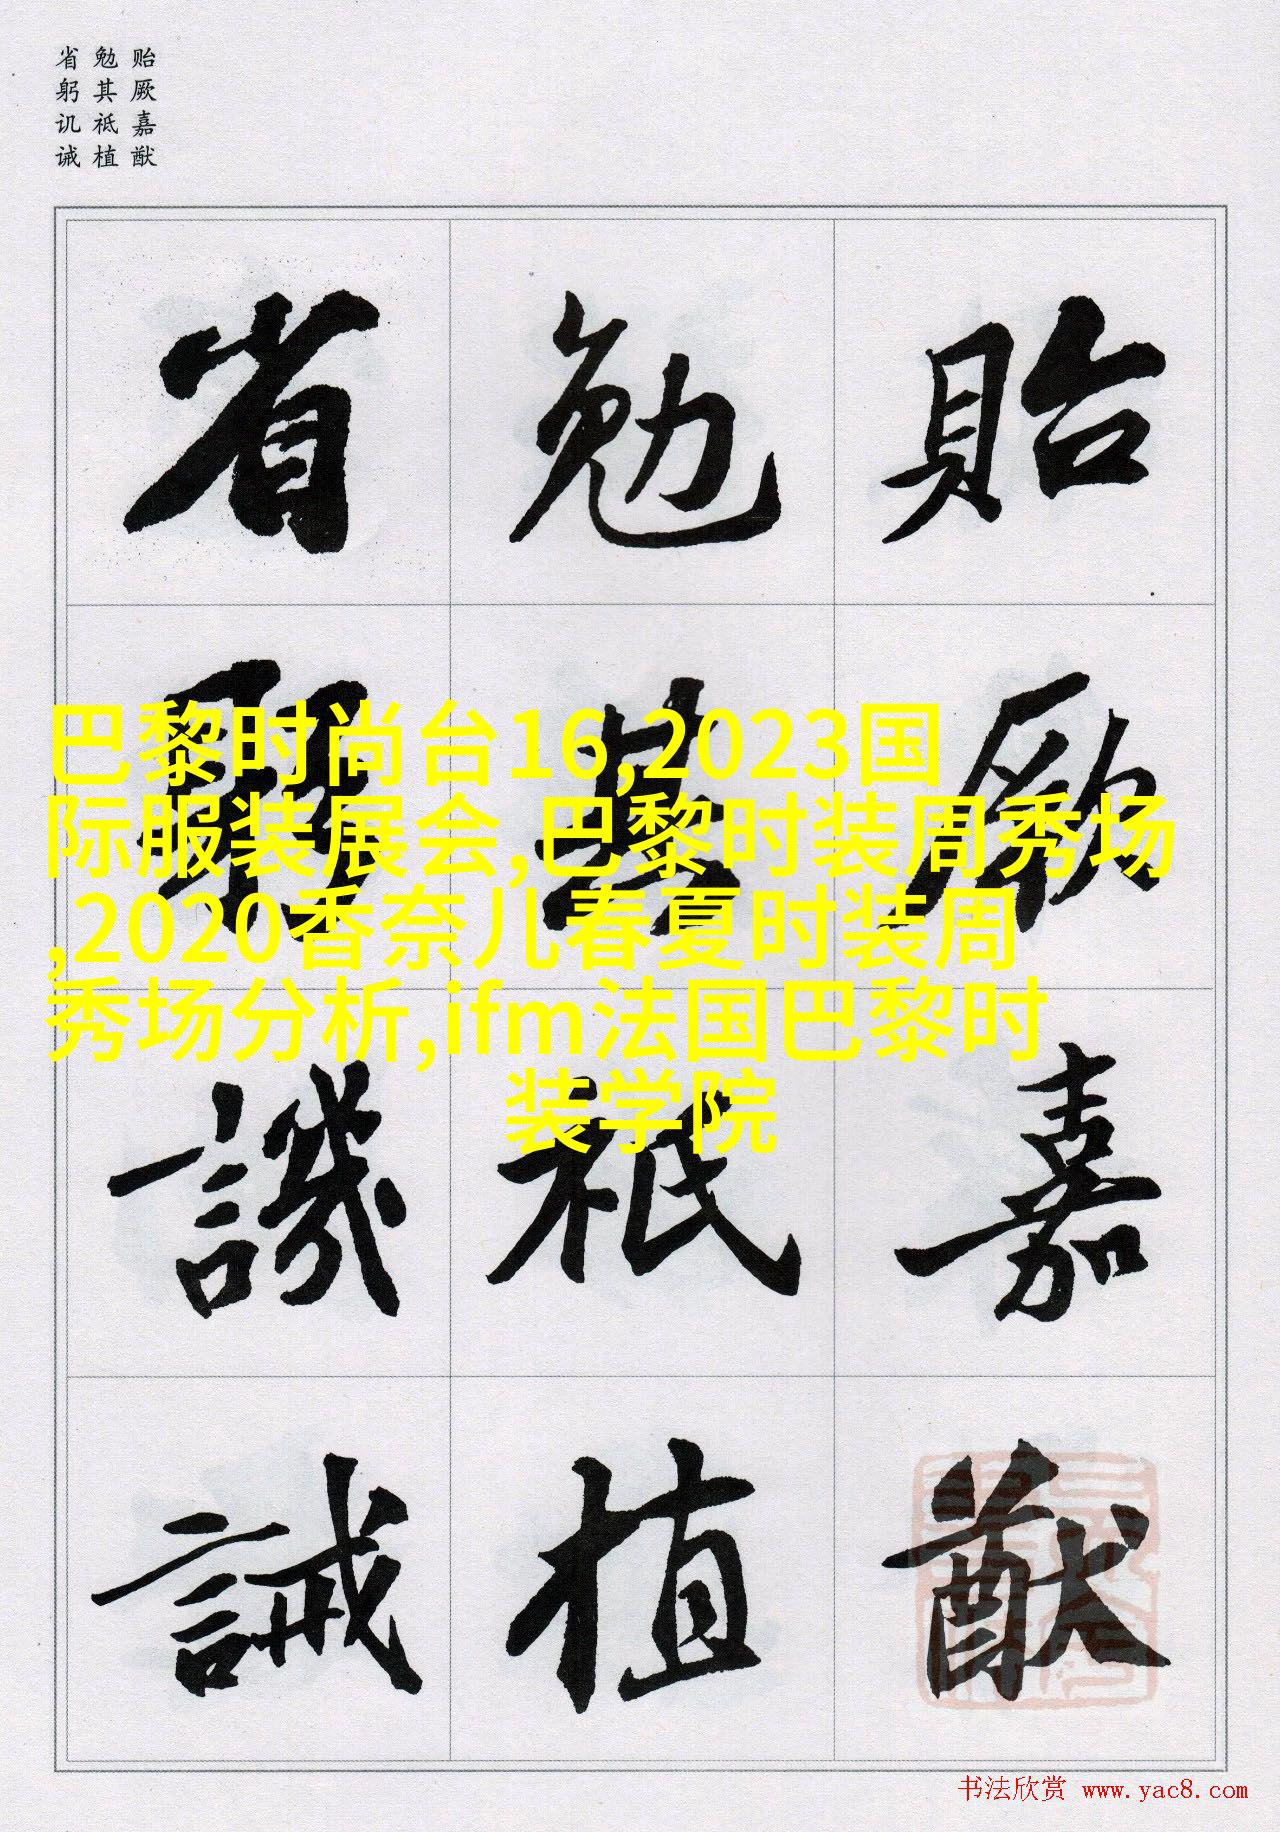 贻厥嘉猷
勉其祗植
省躬讥诫
貽厥嘉猷
勉其祗植
省躬譏誡
巴黎时尚台16,2023国
际服装展会,巴黎时装周秀场
,2020香奈儿春夏时装周
秀场分析,ifm法国巴黎时
装学院
书法欣赏 www.yac8.com